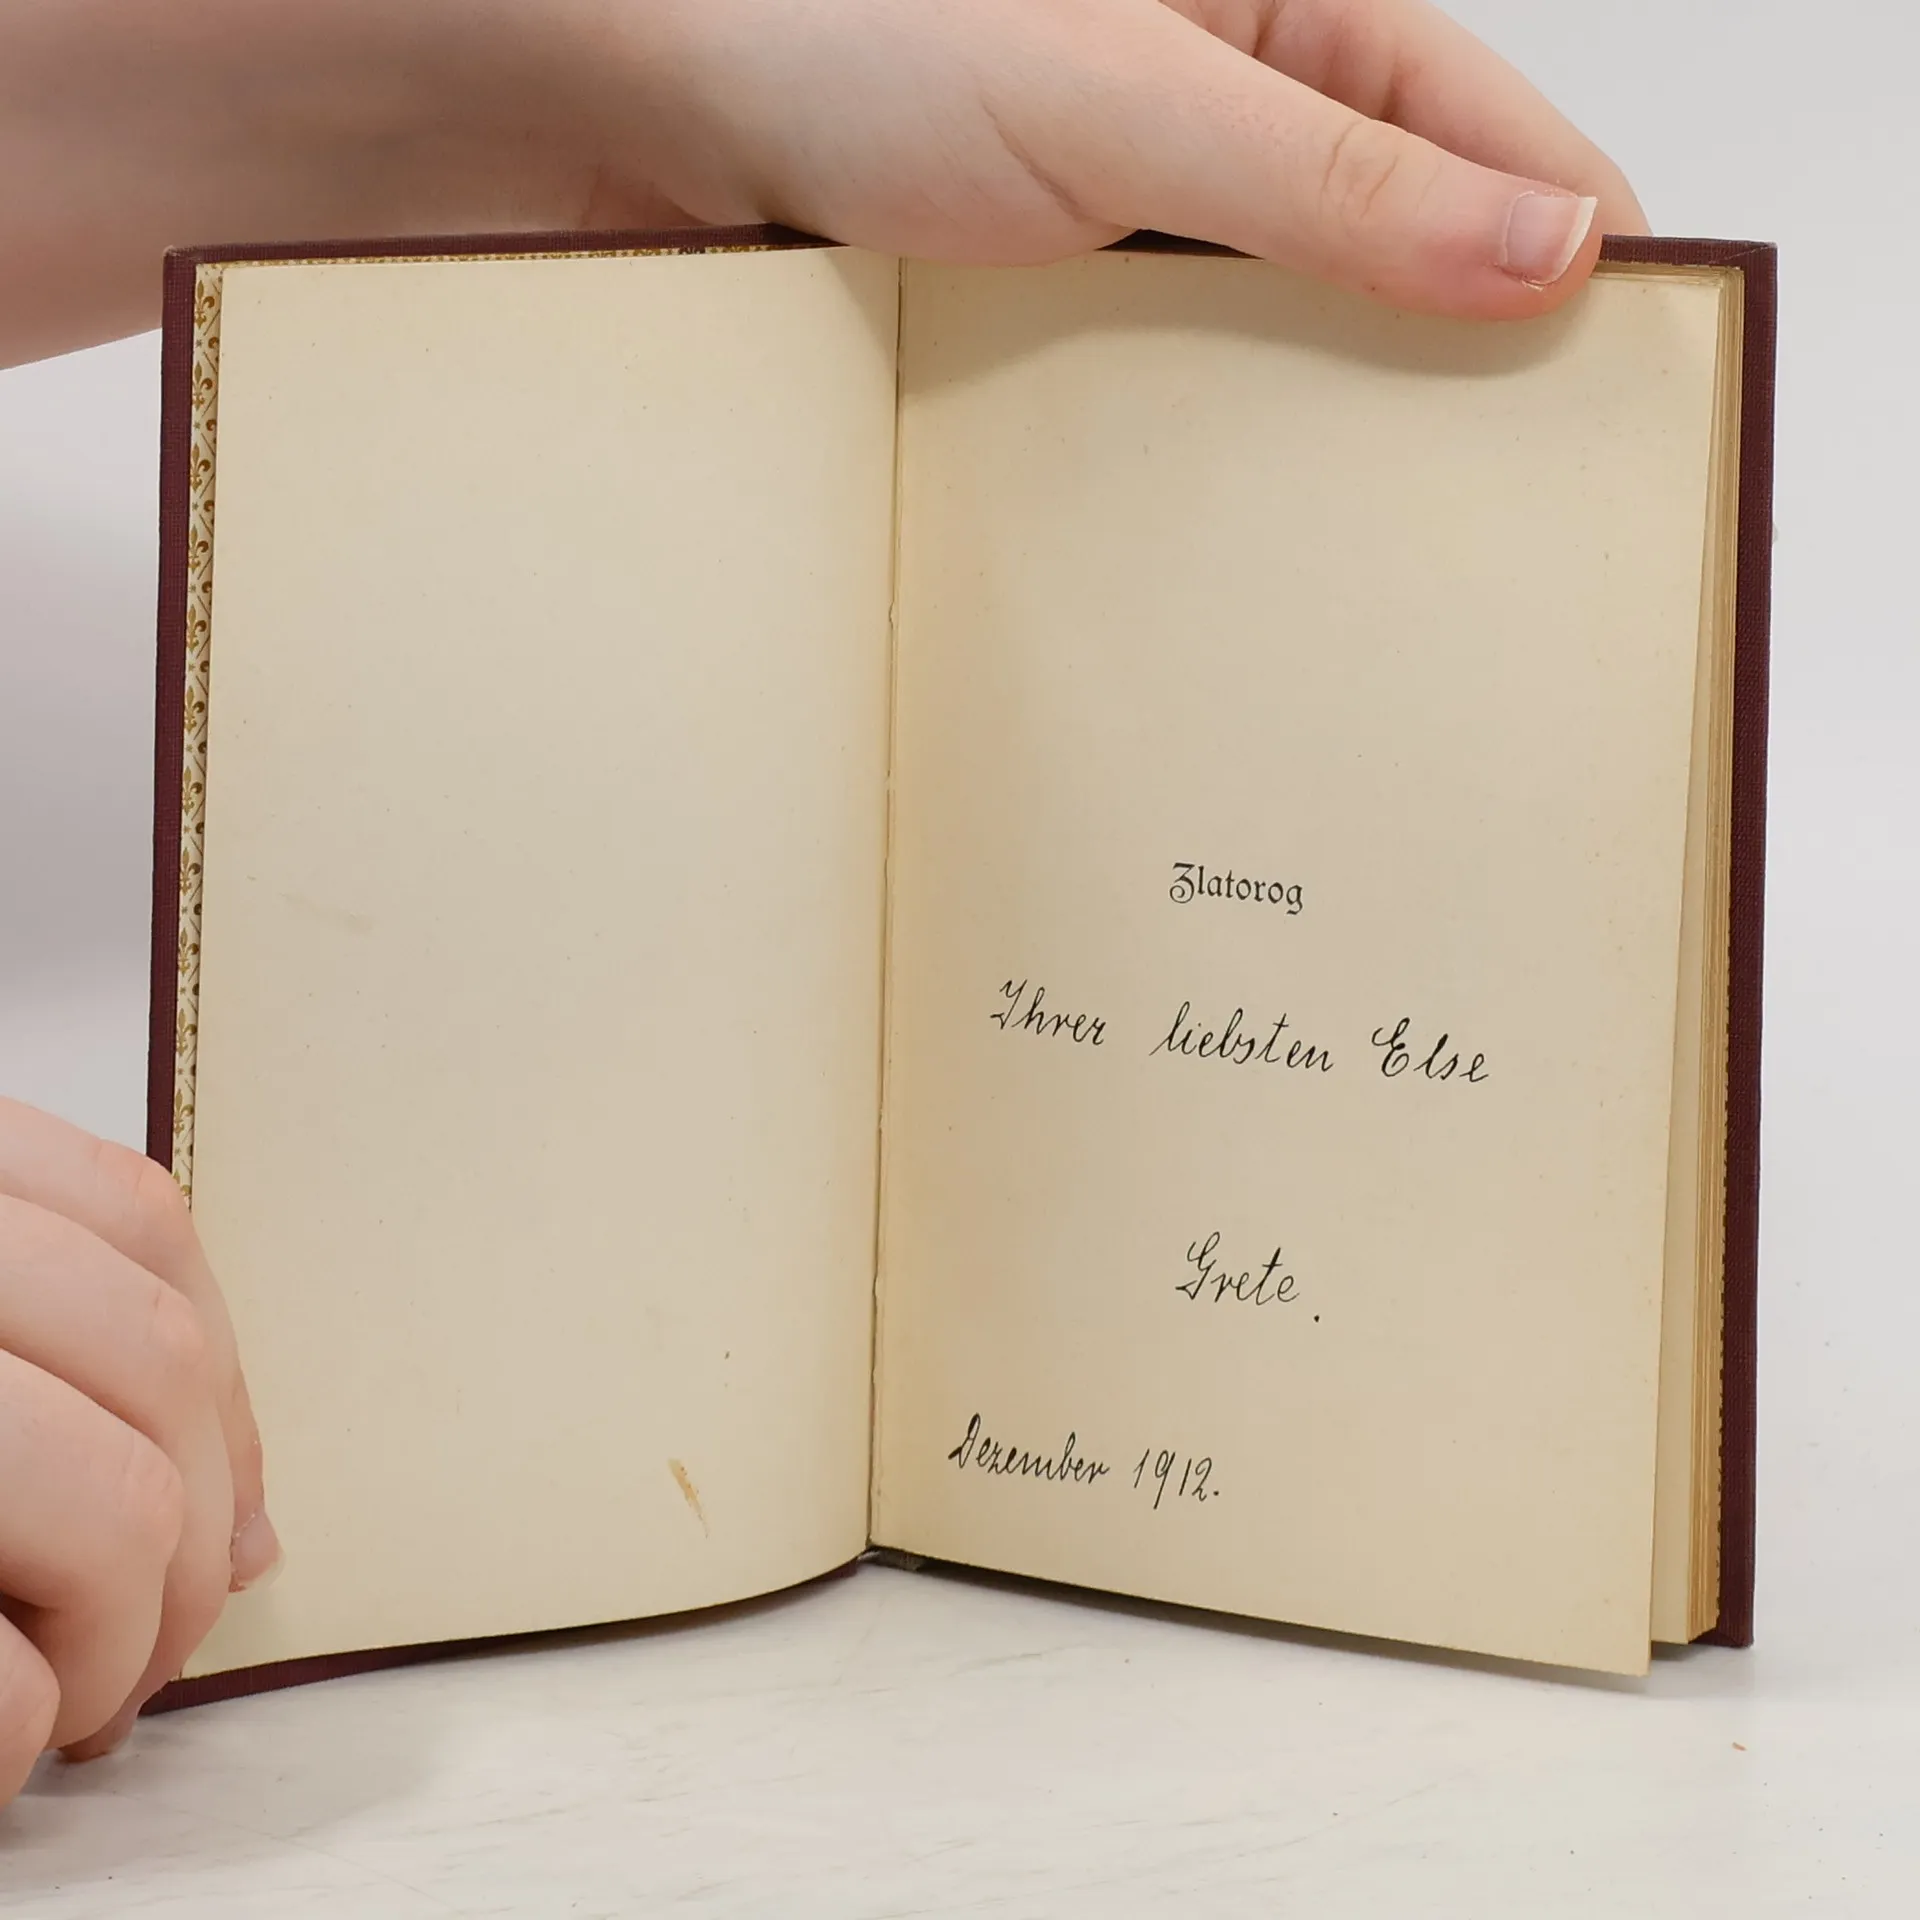 Zlatorog
Ihrer liebsten Else
Grete.
Dezember 1912.